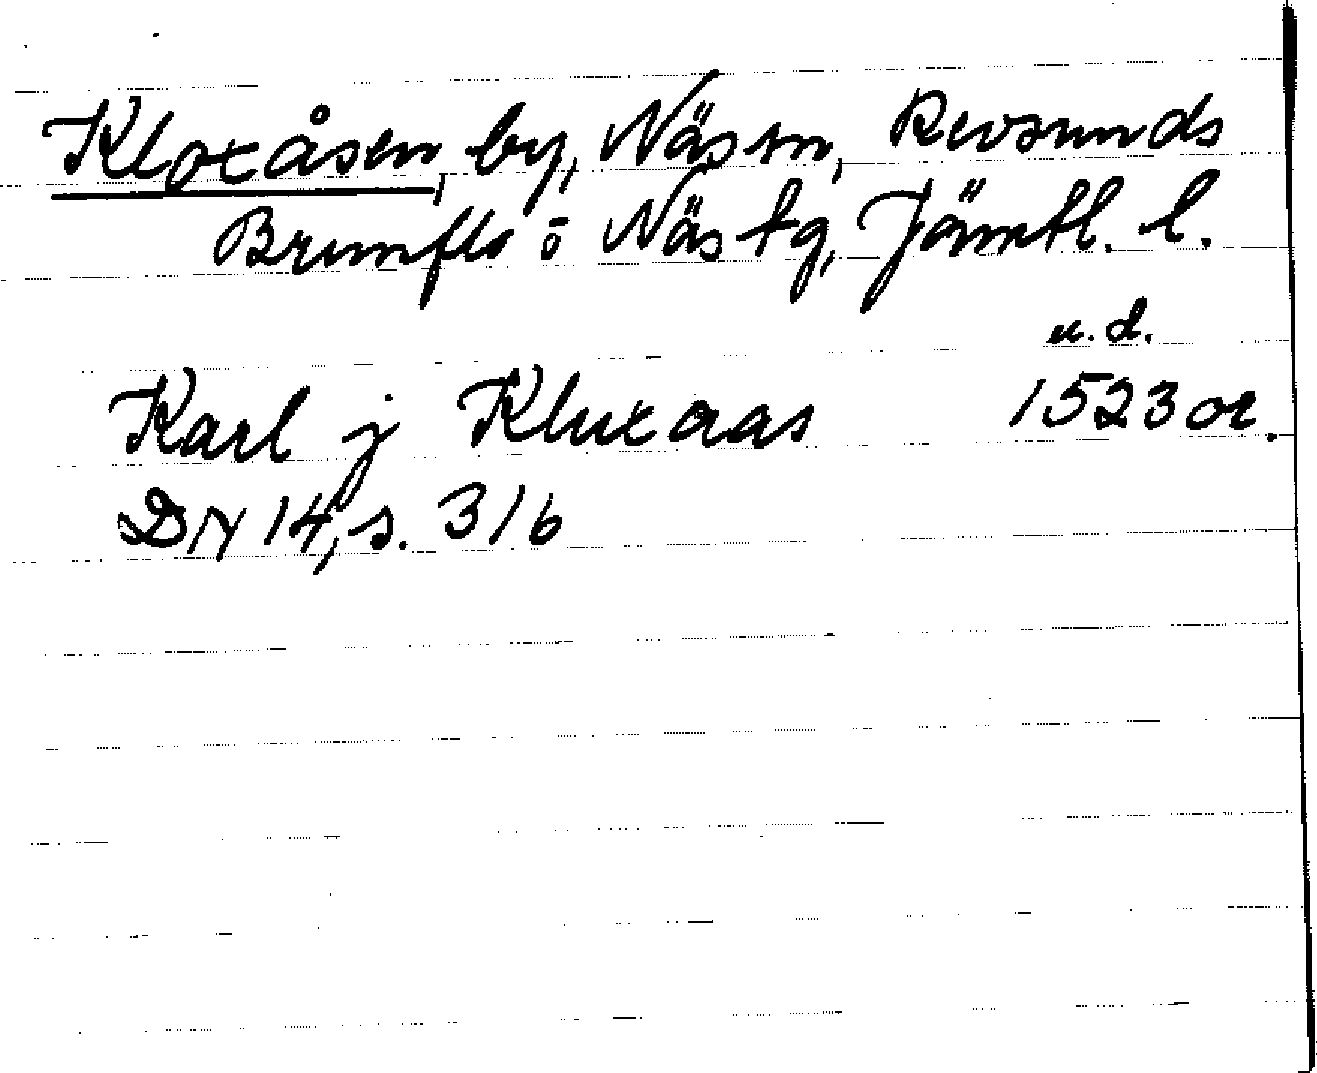 Kloxåsen, by, Näs sn, Revsunds
Brunflo o Näs tg, Jämtl. l.
u.d.
Karl j Kluxaas 1523 or.
DN 14, s. 316